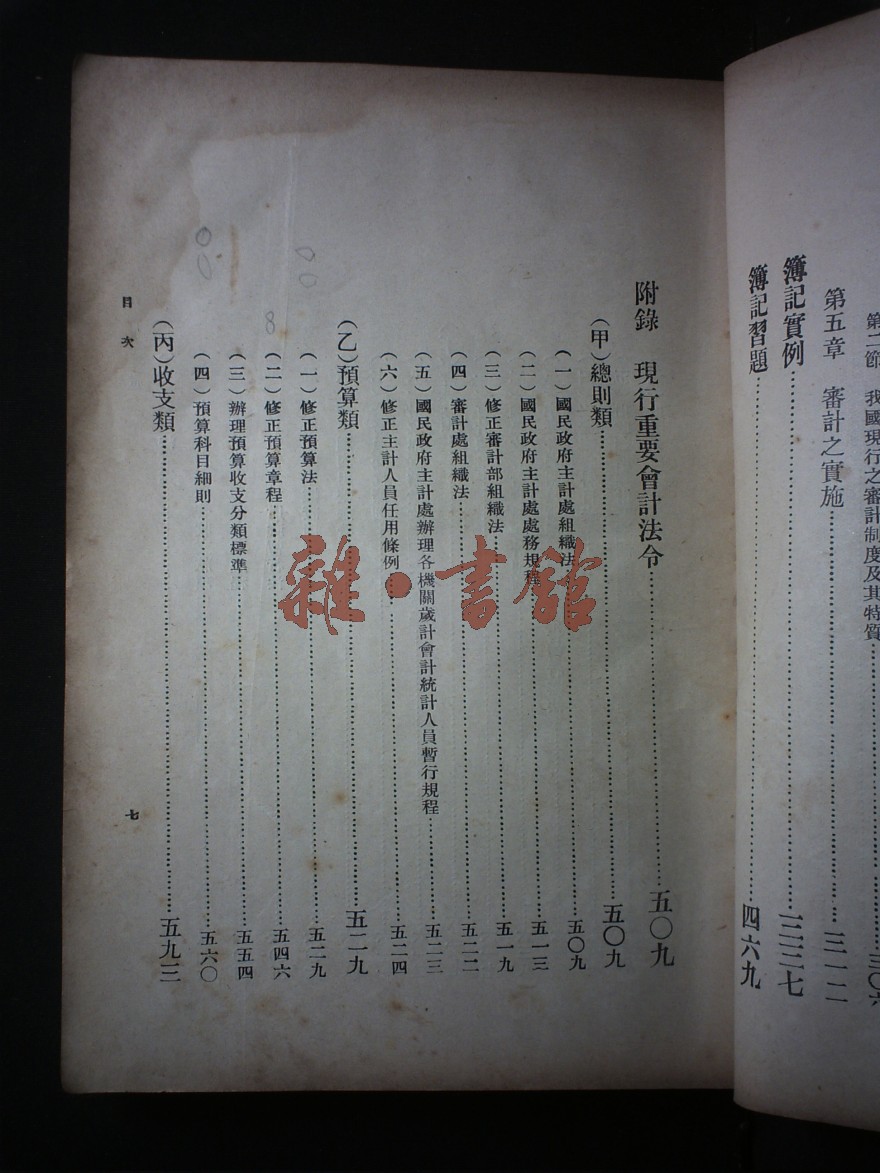 第二節 我國現行之審計制度及其特質……三〇六
第五章 審計之實施……三一二
簿記實例……三二七
簿記習題……四六九
附錄 現行重要會計法令……五〇九
(甲)總則類……五〇九
(一)國民政府主計處組織法……五〇九
(二)國民政府主計處處務規程……五一三
(三)修正審計部組織法……五一九
(四)審計處組織法……五二二
(五)國民政府主計處辦理各機關歲計會計統計人員暫行規程……五二三
(六)修正主計人員任用條例……五二四
(乙)預算類……五二九
(一)修正預算法……五二九
(二)修正預算章程……五四六
(三)辦理預算收支分類標準……五五四
(四)預算科目細則……五六〇
(丙)收支類……五九三
目次
七
雜·書館